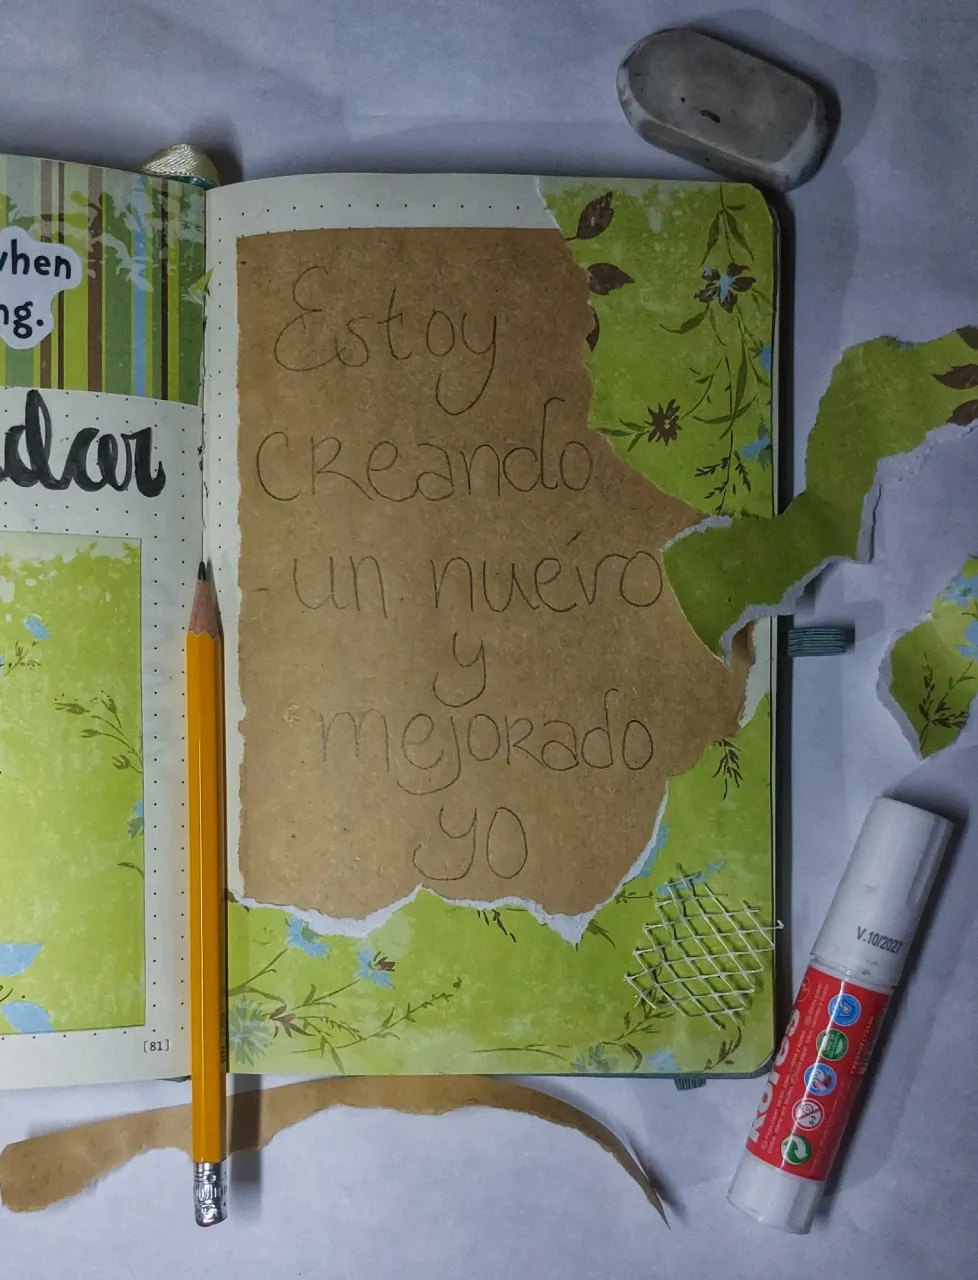 when
ng.
dar
Estoy
creando
un nuevo
y
mejorado
yo
[81]
V.10/2027
Kores